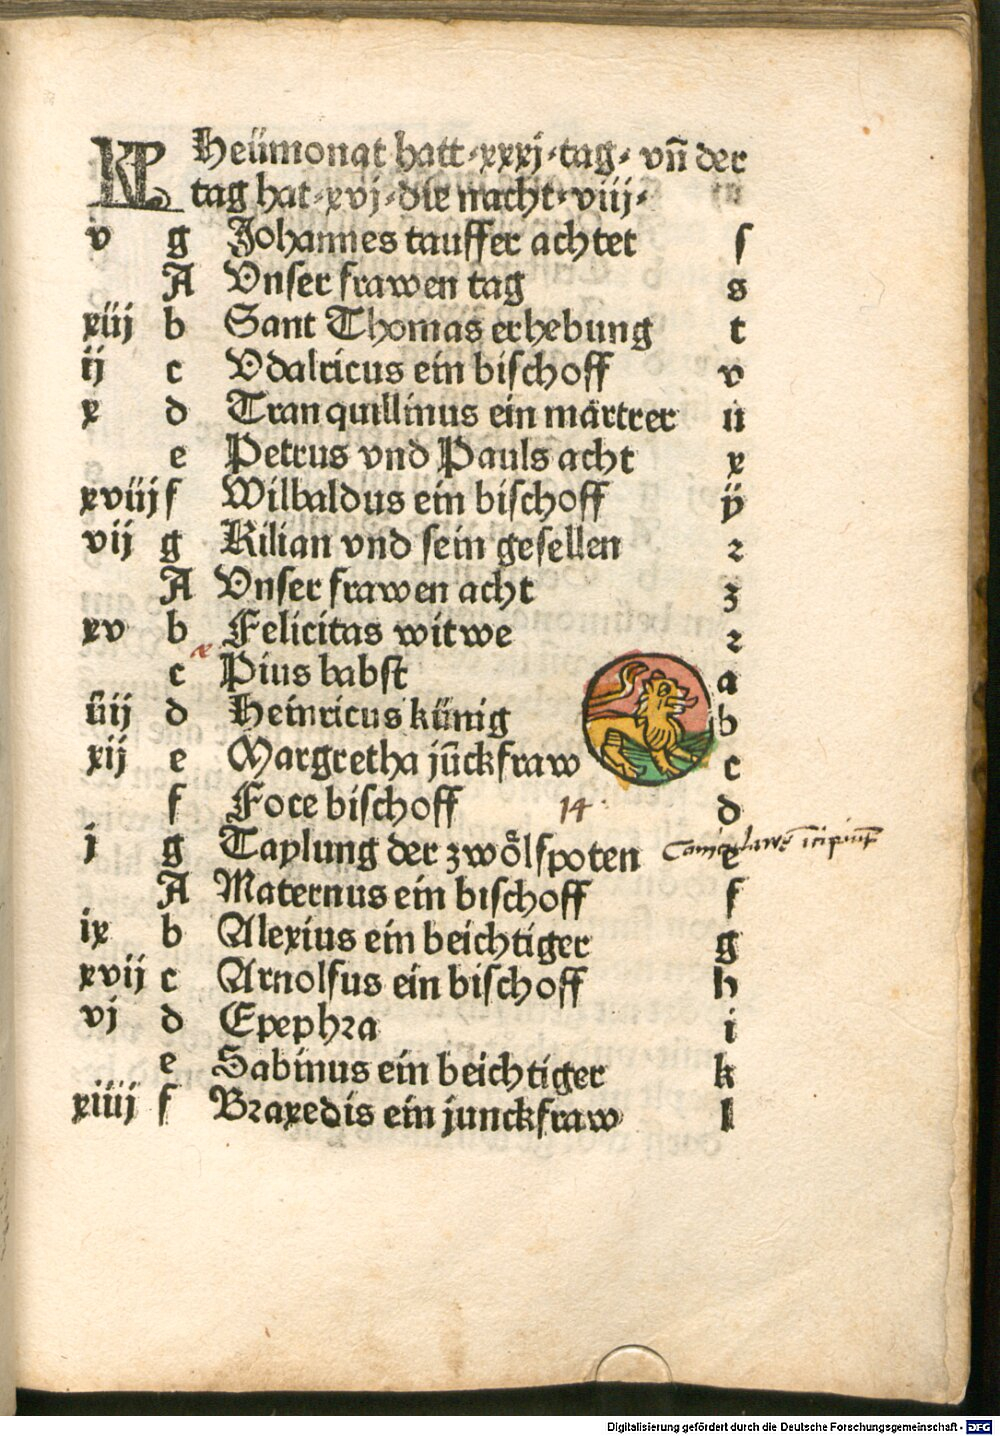 KL Heümonat hatt·xxxj·tag· vñ der
tag hat·xvj·die nacht·viij·
v g Johannes tauffer achtet ſ
A Vnſer frawen tag s
xiij b Sant Thomas erhebung t
ij c Vdalricus ein biſchoff v
x d Tranquillinus ein märtrer ü
e Petrus vnd Pauls acht x
xviij f Wilbaldus ein biſchoff ÿ
vij g Kilian vnd ſein geſellen z
A Vnſer frawen acht ʒ
xv b Felicitas witwe 2
c Pius babſt a
iiij d Heinricus künig b
xij e Margretha jũckfraw c
f Foce biſchoff 14 d
j g Taylung der zwölfpoten e incipiunt
A Maternus ein biſchoff f
ix b Alexius ein beichtiger g
xvij c Arnolfus ein biſchoff h
vj d Epephra i
e Sabinus ein beichtiger k
xiiij f Braxedis ein junckfraw l
Digitalisierung gefördert durch die Deutsche Forschungsgemeinschaft - DFG